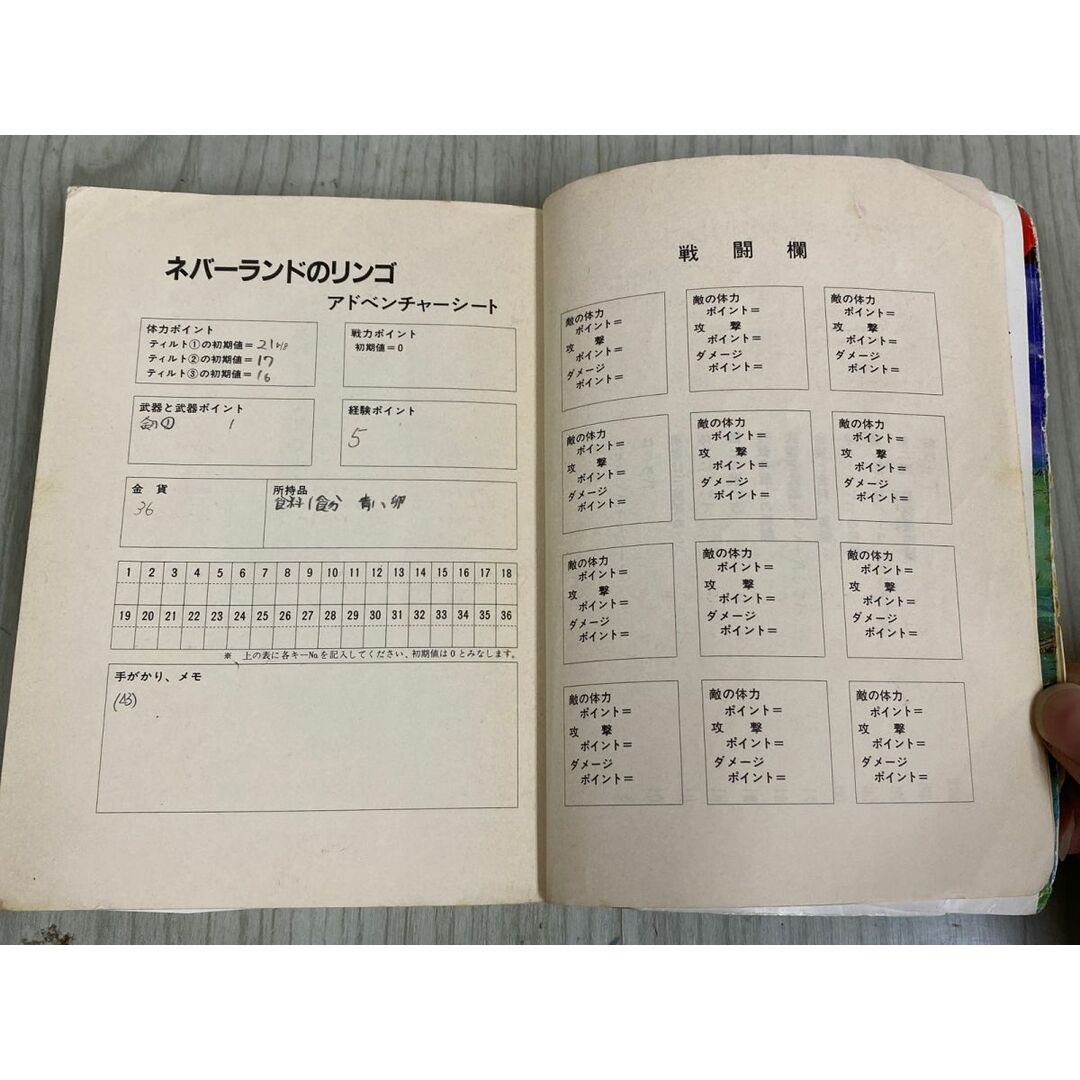 ネバーランドのリンゴ
アドベンチャーシート
体力ポイント
ティルト①の初期値=21
ティルト②の初期値=17
ティルト③の初期値=16
戦力ポイント
初期値=0
武器と武器ポイント
剣① 1
経験ポイント
5
金 貨
36
所持品
食料1食分 青い卵
1 2 3 4 5 6 7 8 9 10 11 12 13 14 15 16 17 18
19 20 21 22 23 24 25 26 27 28 29 30 31 32 33 34 35 36
※ 上の表に各キーNo.を記入してください、初期値は0とみなします。
手がかり、メモ
戦 闘 欄
敵の体力
ポイント=
攻 撃
ポイント=
ダメージ
ポイント=
敵の体力
ポイント=
攻 撃
ポイント=
ダメージ
ポイント=
敵の体力
ポイント=
攻 撃
ポイント=
ダメージ
ポイント=
敵の体力
ポイント=
攻 撃
ポイント=
ダメージ
ポイント=
敵の体力
ポイント=
攻 撃
ポイント=
ダメージ
ポイント=
敵の体力
ポイント=
攻 撃
ポイント=
ダメージ
ポイント=
敵の体力
ポイント=
攻 撃
ポイント=
ダメージ
ポイント=
敵の体力
ポイント=
攻 撃
ポイント=
ダメージ
ポイント=
敵の体力
ポイント=
攻 撃
ポイント=
ダメージ
ポイント=
敵の体力
ポイント=
攻 撃
ポイント=
ダメージ
ポイント=
敵の体力
ポイント=
攻 撃
ポイント=
ダメージ
ポイント=
敵の体力
ポイント=
攻 撃
ポイント=
ダメージ
ポイント=